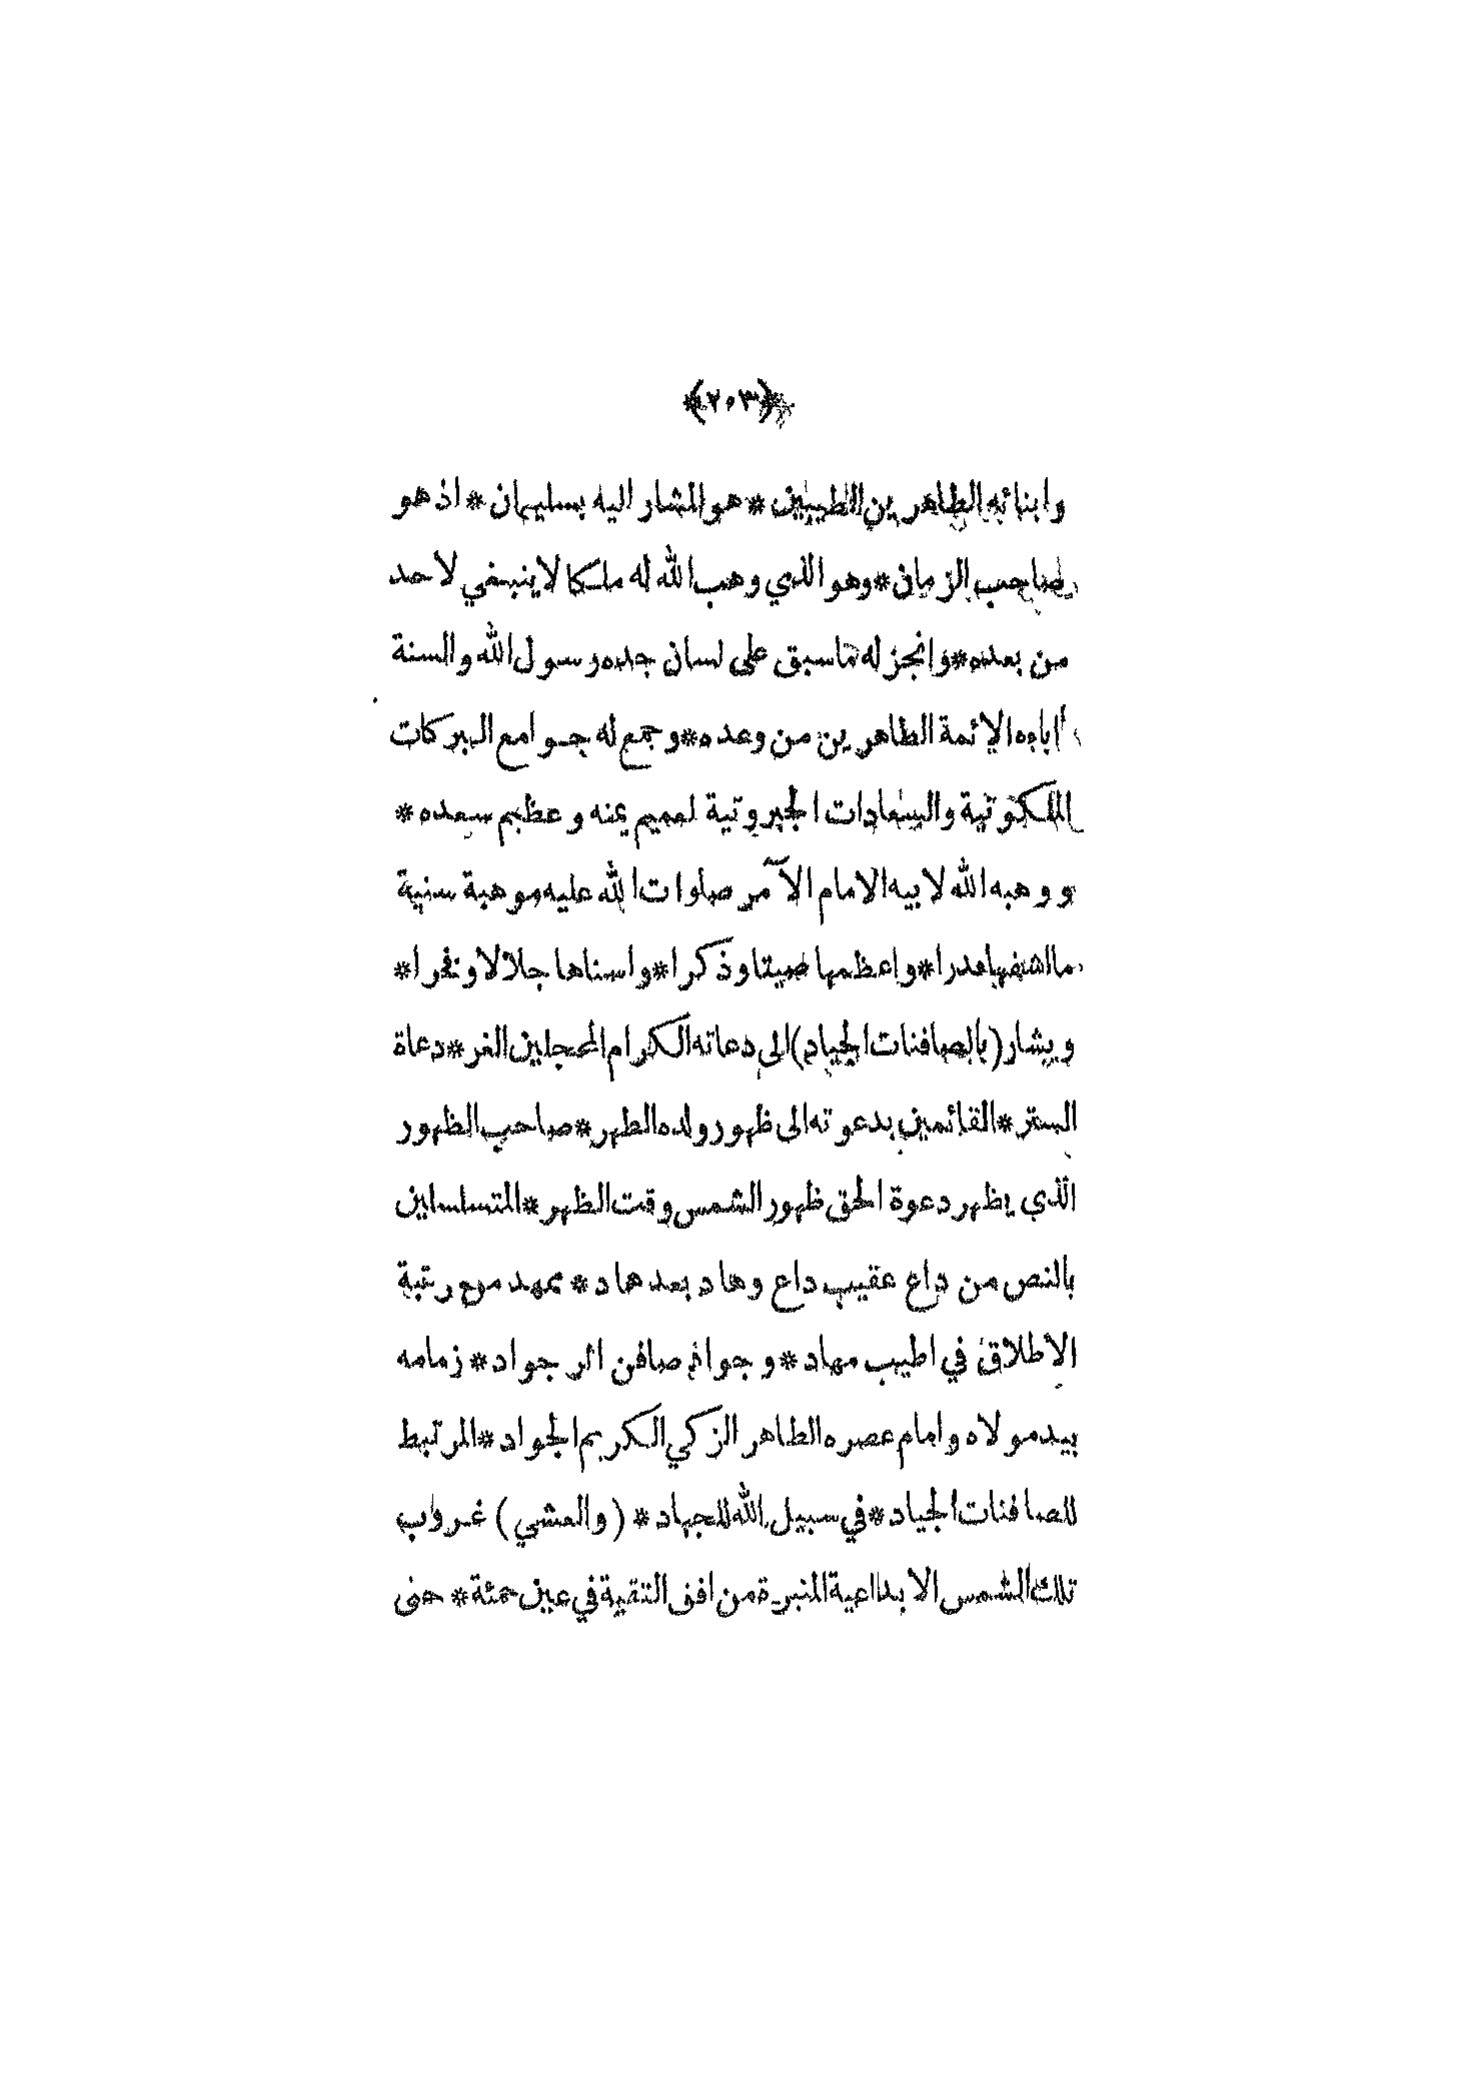 ﴿٢٠٣﴾
وابنائه الطاهرين الطيبين * هو المشار اليه بسليمان * اذ هو
صاحب الزمان * وهو الذي وهب الله له ملكا لا ينبغي لاحد
من بعده * وانجز له ما سبق على لسان جده رسول الله والسنة
اباءه الائمة الطاهرين من وعده * وجمع له جوامع البركات
الملكوتية والسعادات الجبروتية لعميم يمنه وعظيم سعده *
ووهبه الله لابيه الامام الآمر صلوات الله عليه موهبة سنية
ما اشرفها قدرا * واعظمها صيتا وذكرا * واسناها جلالا وفخرا *
ويشار (بالصافنات الجياد) الى دعاته الكرام المحجلين الغر * دعاة
الستر * القائمين بدعوته الى ظهور ولده الطهر * صاحب الظهور
الذي يظهر دعوة الحق ظهور الشمس وقت الظهر * المتسلسلين
بالنص من داع عقيب داع وهاد بعد هاد * ممهد من رتبة
الاطلاق في اطيب مهاد * وجواد صافن اثر جواد * زمامه
بيد مولاه وامام عصره الطاهر الزكي الكريم الجواد * المرتبط
للصافنات الجياد * في سبيل الله للجهاد * (والعشي) غروب
تلك الشمس الابداعية المنيرة من افق التقية في عين حمئة * حتى